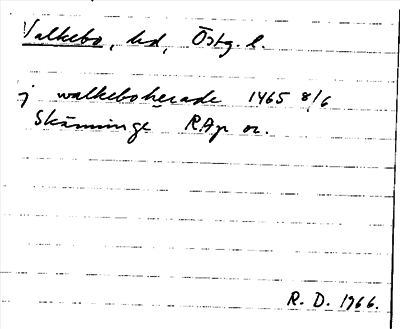 Valkebo, hd, Östg. l.
j walkeboherade 1465 8/6
Skänninge RAp or.
R. D. 1966.